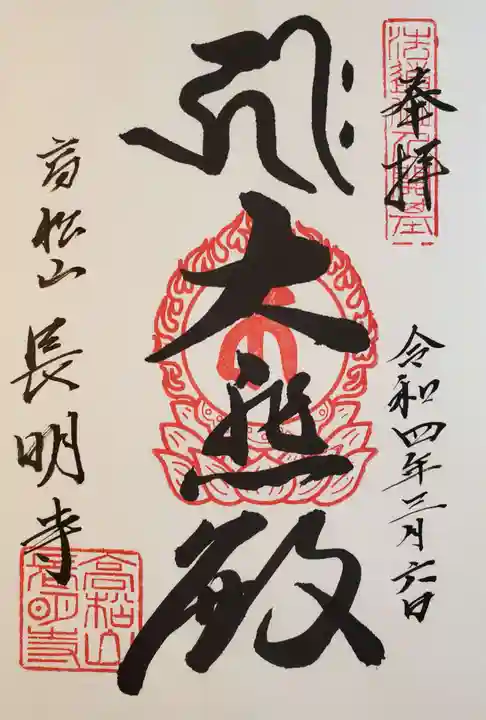 奉拝
令和四年三月六日
大悲殿
高松山
長明寺
高松山
長明寺